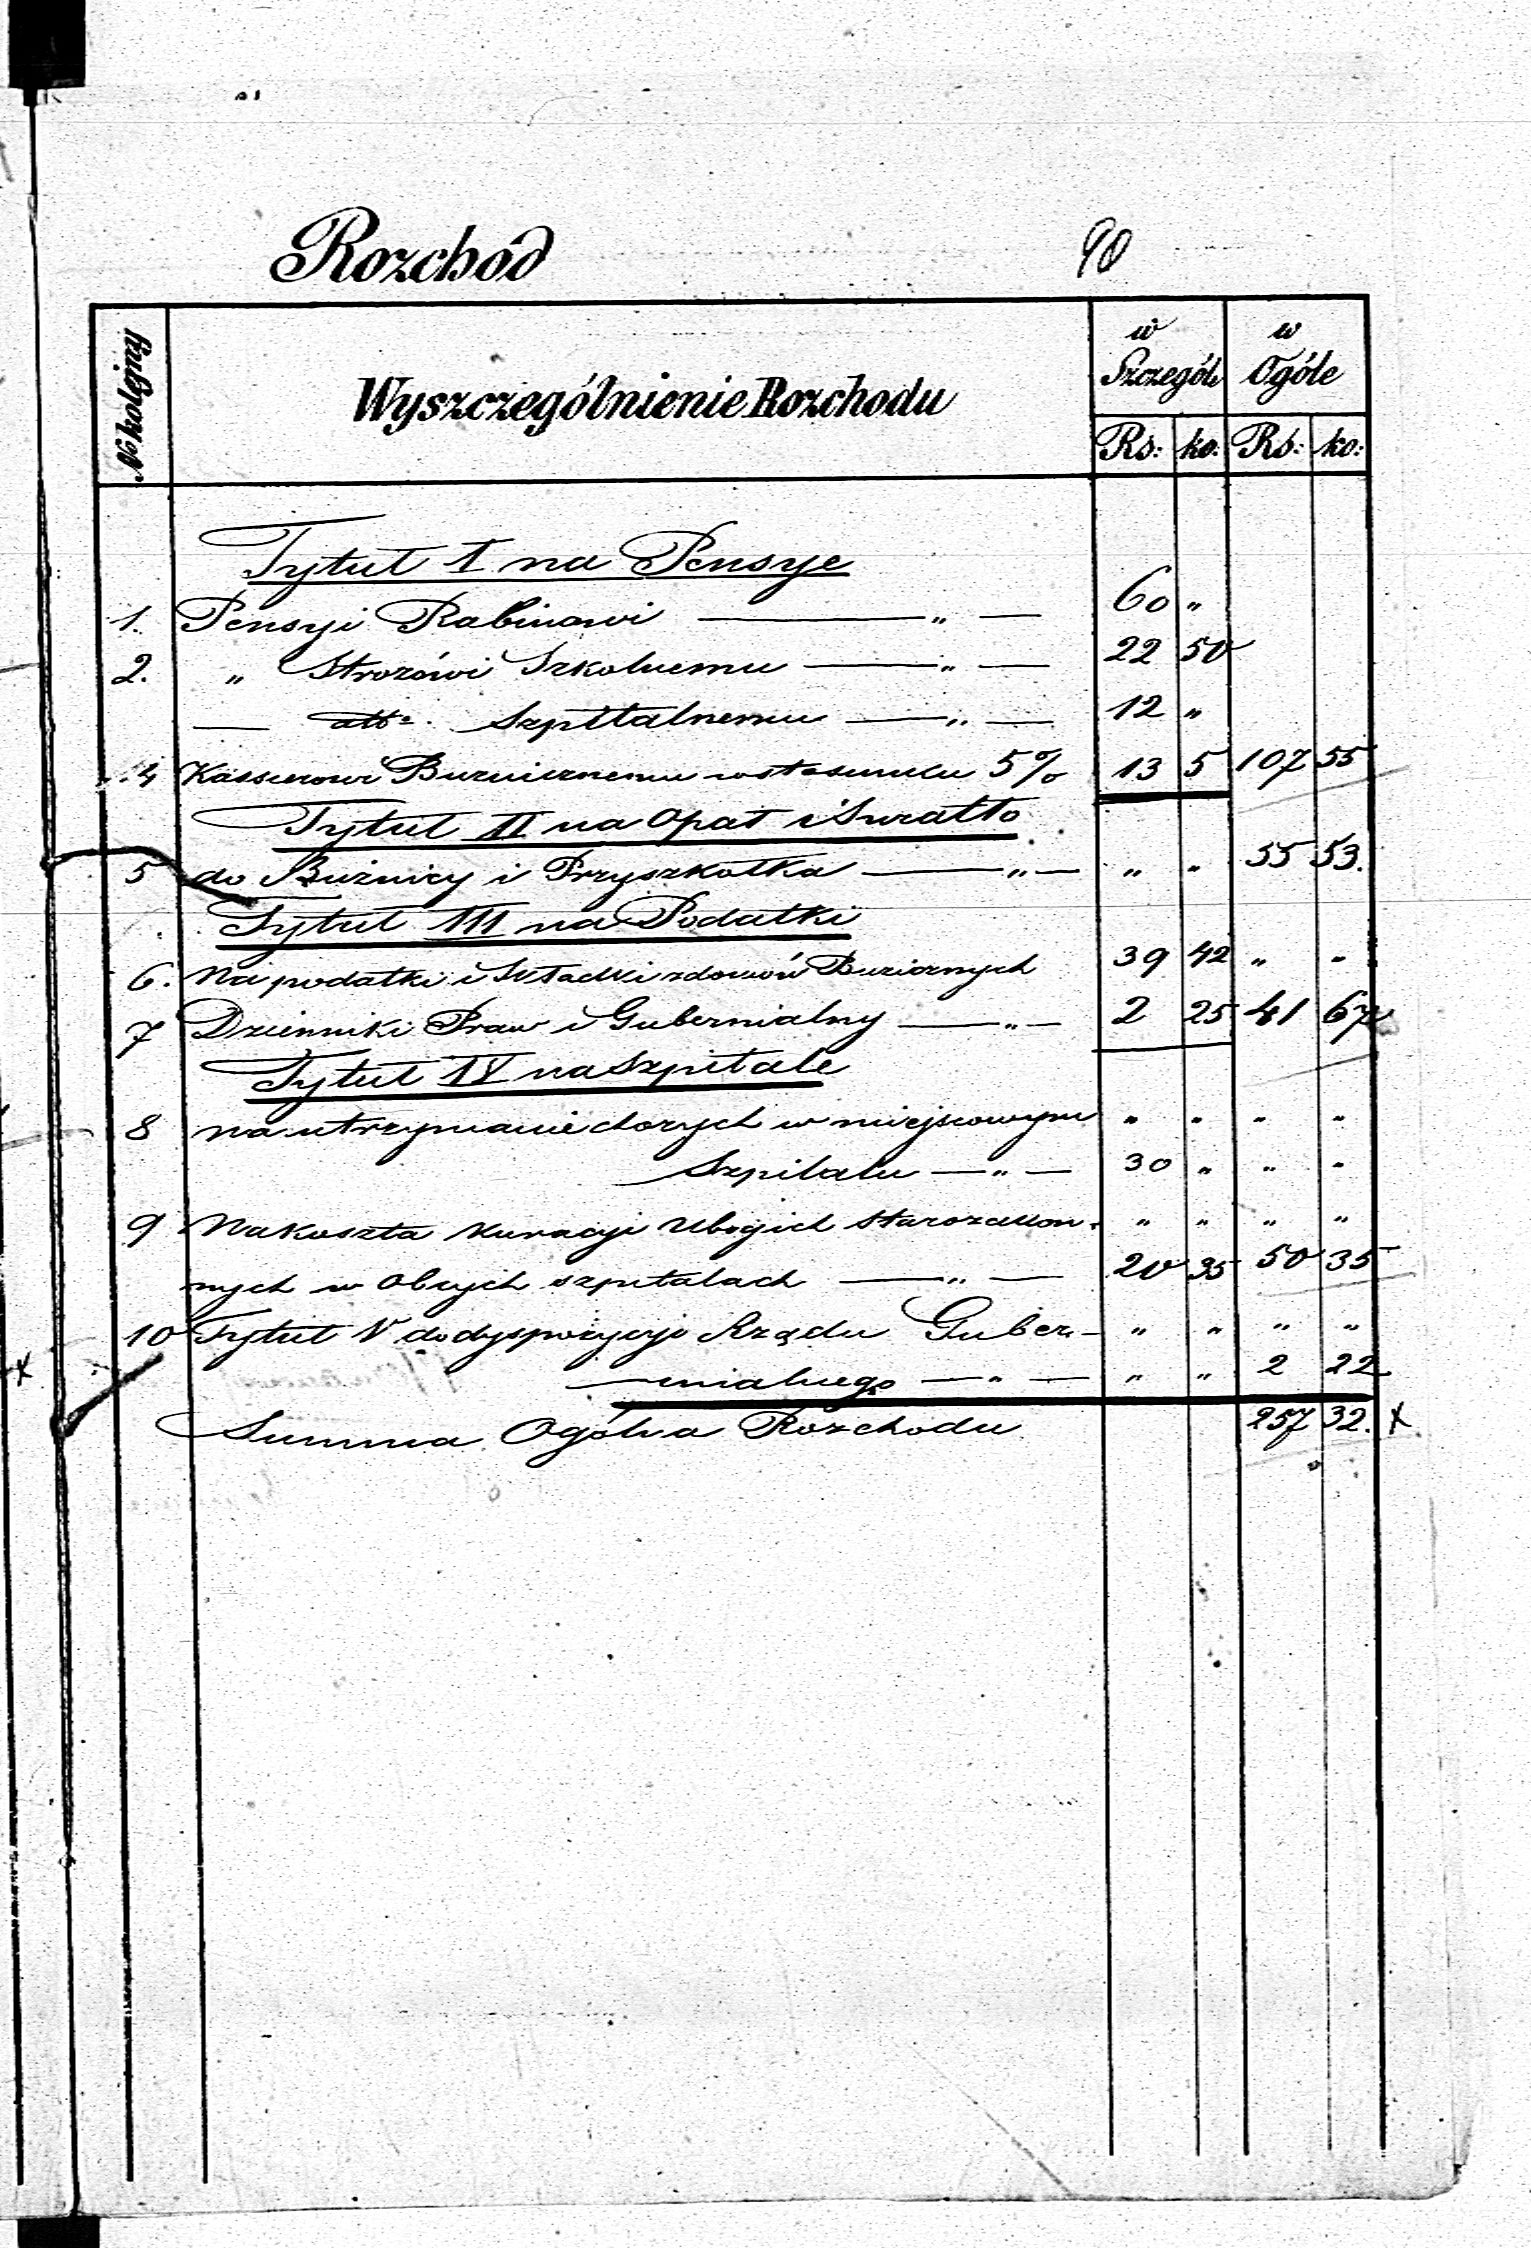 Rozchód 90
No kolejny Wyszczególnienie Rozchodu w Szczególe w Ogóle
Rs: ko: Rs: ko:
Tytuł I na Pensye
1. Pensyi Rabinowi — „ — 60 „
2. „ Strozówi Szkolnemu — „ — 22 50
— dtto. Szpitalnemu — „ — 12 „
4 Kassierowi Bużnicznemu wstosunku 5% 13 5 107 55
Tytuł II na Opał i Swiatło
5 do Bużnicy i Przyszkolka — „ — „ „ 55 53.
Tytuł III na Podatki
6. Na podatki i Składki zdomów Bużicznych 39 42 „ „
7 Dzienniki Praw i Gubernialny — „ — 2 25 41 67
Tytuł IV na Szpitale
8 na utrzymanie chorych w miejscowym „ „ „ „
Szpitalu — „ — 30 „ „ „
9 Na koszta kuracyi Ubogich Starozakon- „ „ „ „
nych w Obcych szpitalach — „ — 20 35 50 35
10 Tytuł V do dyspozycyi Rządu Guber- „ „ „ „
nialnego — „ — „ „ 2 22
Summa Ogólna Rozchodu 257 32. x